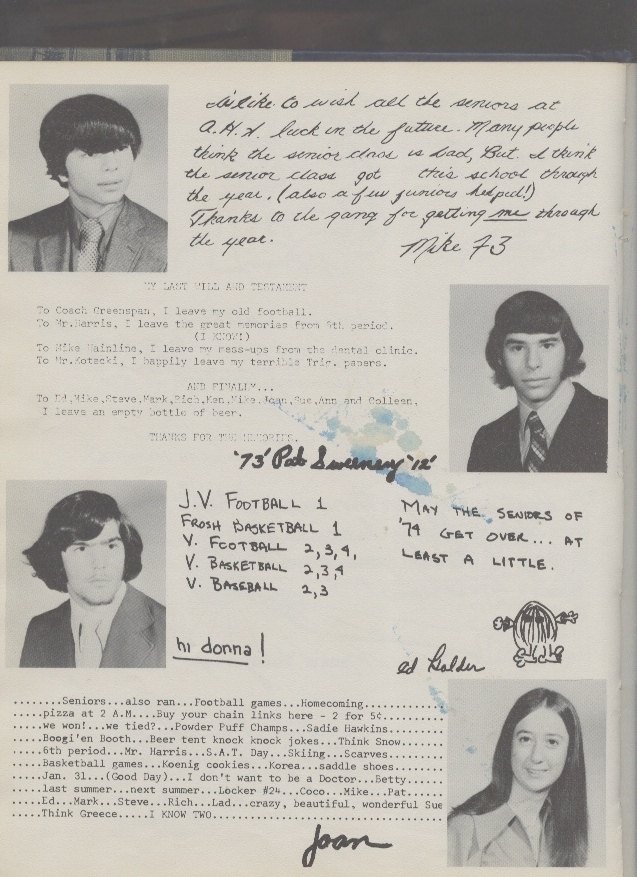 I'd like to wish all the seniors at
A.H.S. luck in the future. Many people
think the senior class is bad, But I think
the senior class got this school through
the year. (also a few juniors helped!)
Thanks to the gang for getting me through
the year.
Mike 73
MY LAST WILL AND TESTAMENT
To Coach Greenspan, I leave my old football.
To Mr.Harris, I leave the great memories from 8th period.
(I KNOW!)
To Mike Mainline, I leave my mess-ups from the dental clinic.
To Mr.Kotecki, I happily leave my terrible Trig. papers.
AND FINALLY...
To Ed,Mike,Steve,Mark,Rich,Ken,Mike,Joan,Sue,Ann and Colleen,
I leave an empty bottle of beer.
THANKS FOR THE MEMORIES.
'73' Pat Sweeney '12'
J.V. FOOTBALL 1
FROSH BASKETBALL 1
V. FOOTBALL 2,3,4,
V. BASKETBALL 2,3,4
V. BASEBALL 2,3
hi donna!
MAY THE SENIORS OF
'74 GET OVER... AT
LEAST A LITTLE.
ed Golder
........Seniors...also ran...Football games...Homecoming............
.....pizza at 2 A.M....Buy your chain links here - 2 for 5¢.........
.....we won!...we tied?...Powder Puff Champs...Sadie Hawkins........
.....Boogi'en Booth...Beer tent knock knock jokes...Think Snow......
.....6th period...Mr. Harris...S.A.T. Day...Skiing...Scarves........
.....Basketball games...Koenig cookies...Korea...saddle shoes.......
.....Jan. 31...(Good Day)...I don't want to be a Doctor...Betty.....
.....last summer...next summer...Locker #24...Coco...Mike...Pat.....
....Ed...Mark...Steve...Rich...Lad...crazy, beautiful, wonderful Sue
....Think Greece.....I KNOW TWO.....................................
Joan